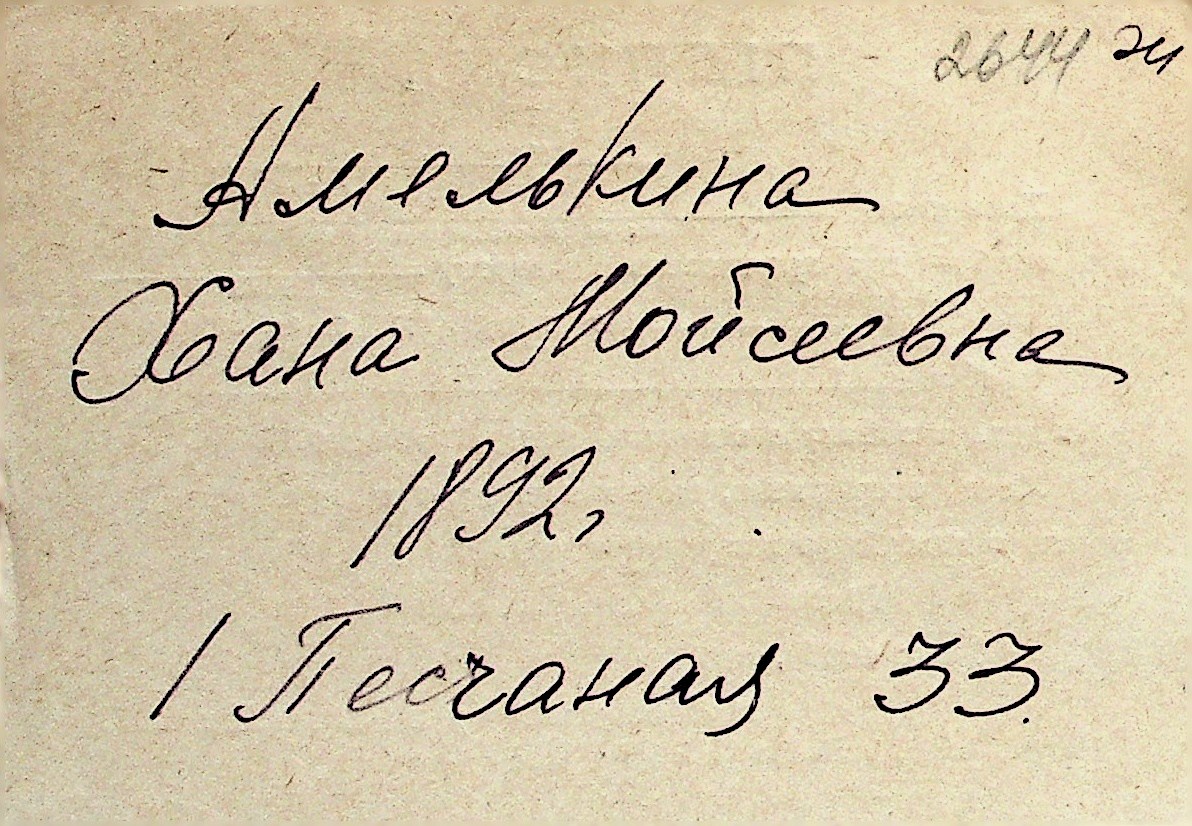 2644 ж
Амелькина
Хана Мойсеевна
1892г
1 Песчаная 33.